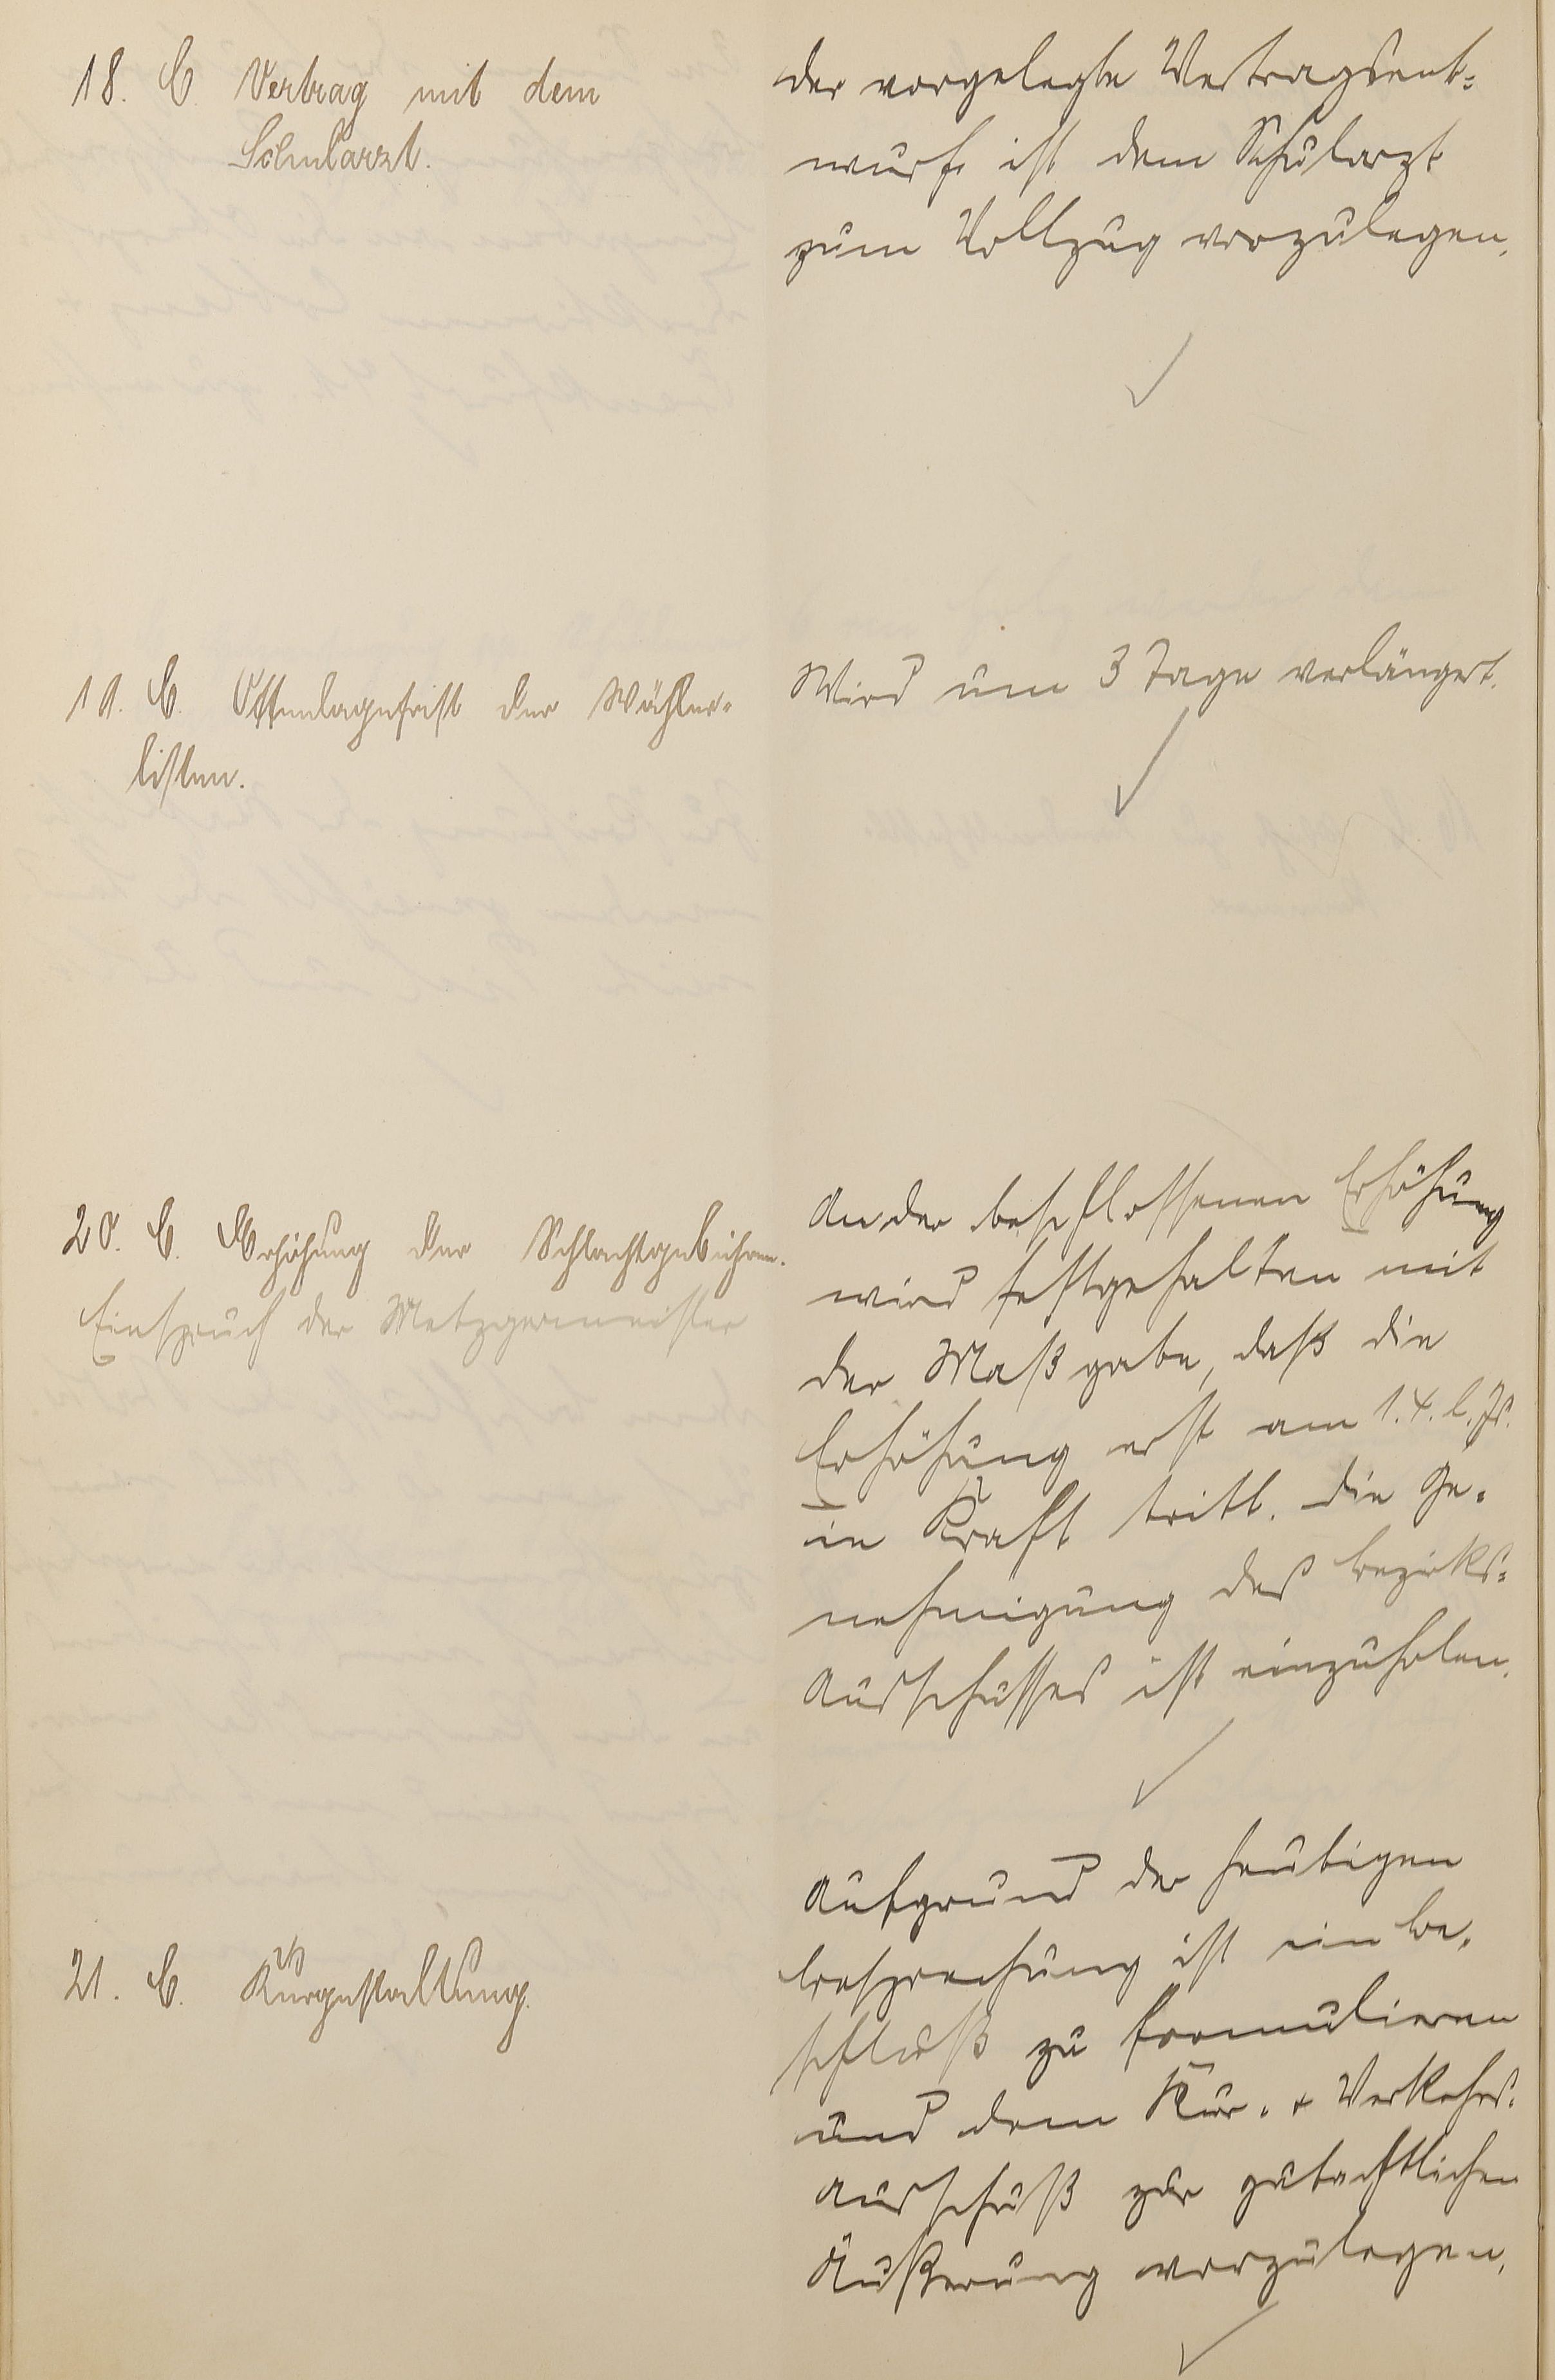 18. C. Vertrag mit dem
Schularzt.
der vorgelegte Vertragsent-
wurf ist dem Schularzt
zum Vollzug vorzulegen.
19. C. Offenlagefrist der Wähler-
listen.
Wird um 3 Tage verlängert.
20. C. Erhöhung der Schlachtgebühren.
Einspruch der Metzgermeister
An der beschlossenen Erhöhung
wird festgehalten mit
der Maßgabe, daß die
Erhöhung erst am 1.4. l. Js.
in Kraft tritt. Die Ge-
nehmigung des Bezirks-
Ausschusses ist einzuholen.
21. C. Kurgestaltung.
Aufgrund der heutigen
Besprechung ist ein Be-
schluß zu formulieren
und dem Kur- + Verkehrs-
Ausschuß zur gutachtlichen
Äußerung vorzulegen.